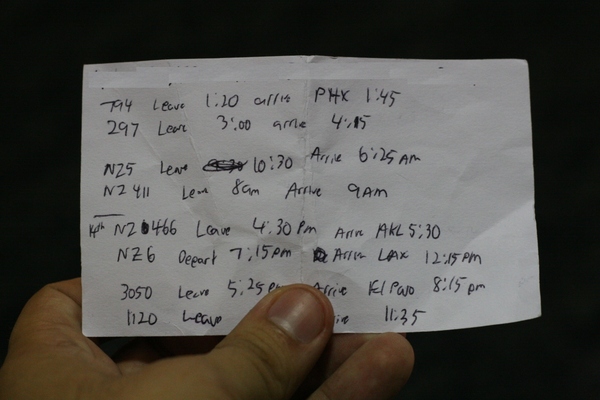 794 Leave 1:20 arrive PHX 1:45
297 Leave 3:00 arrive 4:15
NZ5 Leave 10:30 Arrive 6:25 AM
NZ 411 Leave 8am Arrive 9AM
14th NZ 466 Leave 4:30 Pm Arrive AKL 5:30
NZ6 Depart 7:15pm Arrive LAX 12:15pm
3050 Leave 5:25 Arrive El Paso 8:15 pm
1120 Leave 11:35